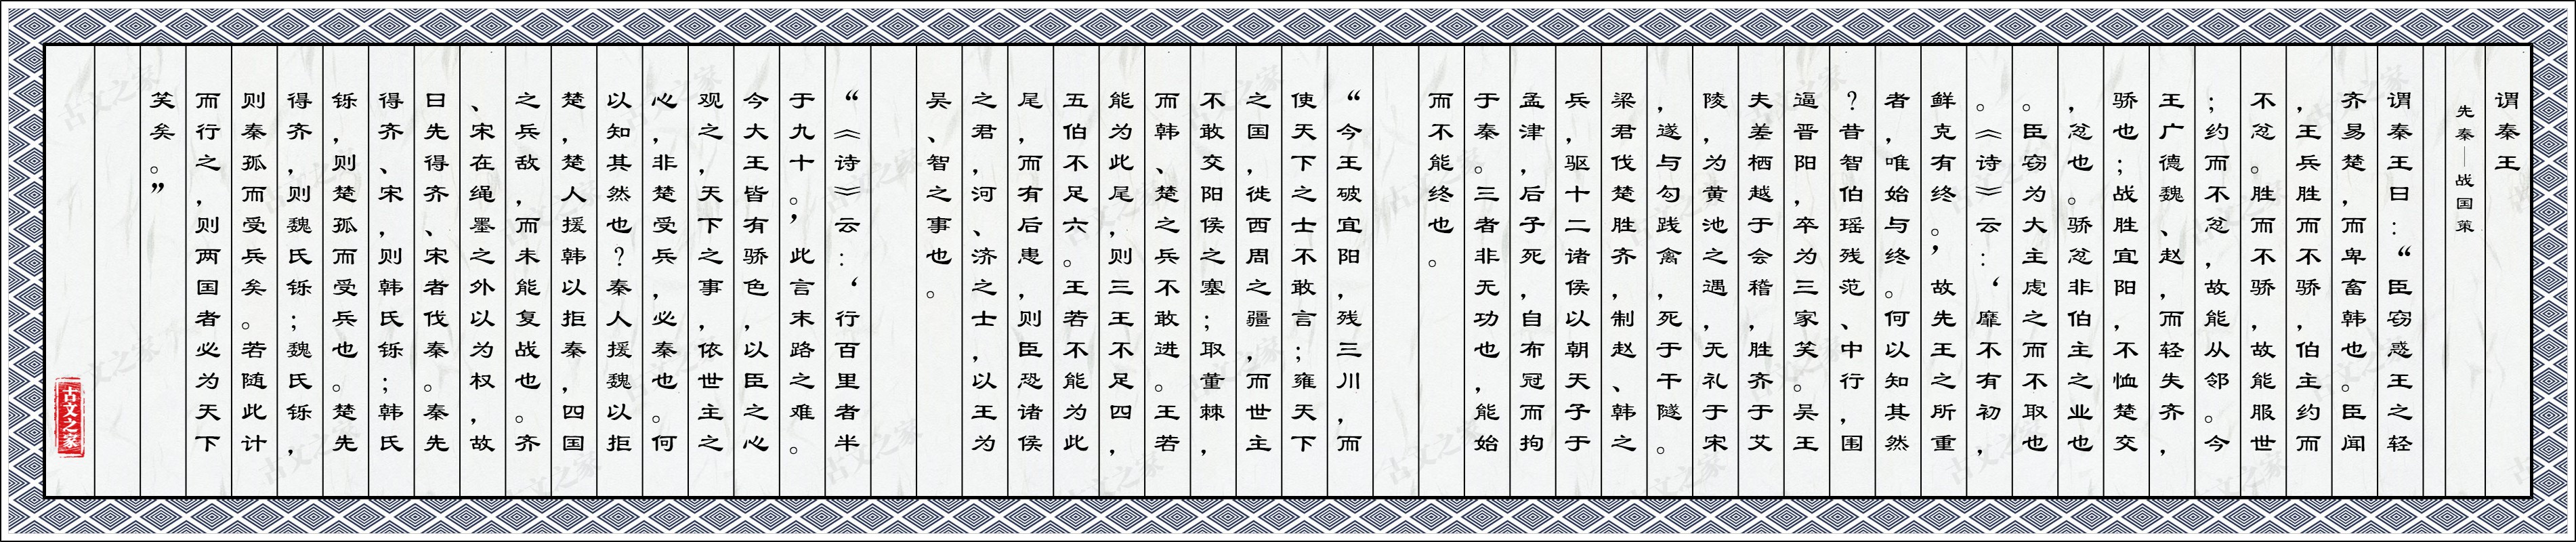 谓秦王
先秦—战国策
谓秦王曰：“臣窃惑王之轻
齐易楚，而卑畜韩也。臣闻
，王兵胜而不骄，伯主约而
不忿。胜而不骄，故能服世
；约而不忿，故能从邻。今
王广德魏、赵，而轻失齐，
骄也；战胜宜阳，不恤楚交
，忿也。骄忿非伯主之业也
。臣窃为大主虑之而不取也
。《诗》云：‘靡不有初，
鲜克有终。’故先王之所重
者，唯始与终。何以知其然
？昔智伯瑶残范、中行，围
逼晋阳，卒为三家笑。吴王
夫差栖越于会稽，胜齐于艾
陵，为黄池之遇，无礼于宋
，遂与勾践禽，死于干隧。
梁君伐楚胜齐，制赵、韩之
兵，驱十二诸侯以朝天子于
孟津，后子死，自布冠而拘
于秦。三者非无功也，能始
而不能终也。
“今王破宜阳，残三川，而
使天下之士不敢言；雍天下
之国，徙西周之疆，而世主
不敢交阳侯之塞；取董棘，
而韩、楚之兵不敢进。王若
能为此尾，则三王不足四，
五伯不足六。王若不能为此
尾，而有后患，则臣恐诸侯
之君，河、济之士，以王为
吴、智之事也。
“《诗》云：‘行百里者半
于九十。’此言末路之难。
今大王皆有骄色，以臣之心
观之，天下之事，依世主之
心，非楚受兵，必秦也。何
以知其然也？秦人援魏以拒
楚，楚人援韩以拒秦，四国
之兵敌，而未能复战也。齐
、宋在绳墨之外以为权，故
曰先得齐、宋者伐秦。秦先
得齐、宋，则韩氏铄；韩氏
铄，则楚孤而受兵也。楚先
得齐，则魏氏铄；魏氏铄，
则秦孤而受兵矣。若随此计
而行之，则两国者必为天下
笑矣。”
古文之家